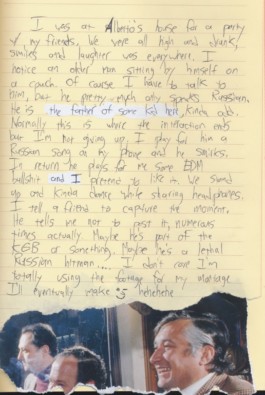 I was at Alberto's house for a party
w/ my friends. We were all high and drunk,
smiles and laughter was everywhere. I
notice an older man sitting by himself on
a couch. Of course I have to talk to
him, but he pretty much only speaks Russian.
He is the father of some kid here. Kinda odd.
Normally this is where the interaction ends
but I'm not giving up. I play for him a
Russian song on my phone and he smirks.
In return he plays for me some EDM
bullshit and I pretend to like it. We stand
up and kinda dance while sharing headphones.
I tell a friend to capture the moment.
He tells me not to post it, numerous
times actually. Maybe he's part of the
KGB or something. Maybe he's a lethal
Russian hitman.... I don't care I'm
totally using the footage for my montage
I'll eventually make :) hehehehe